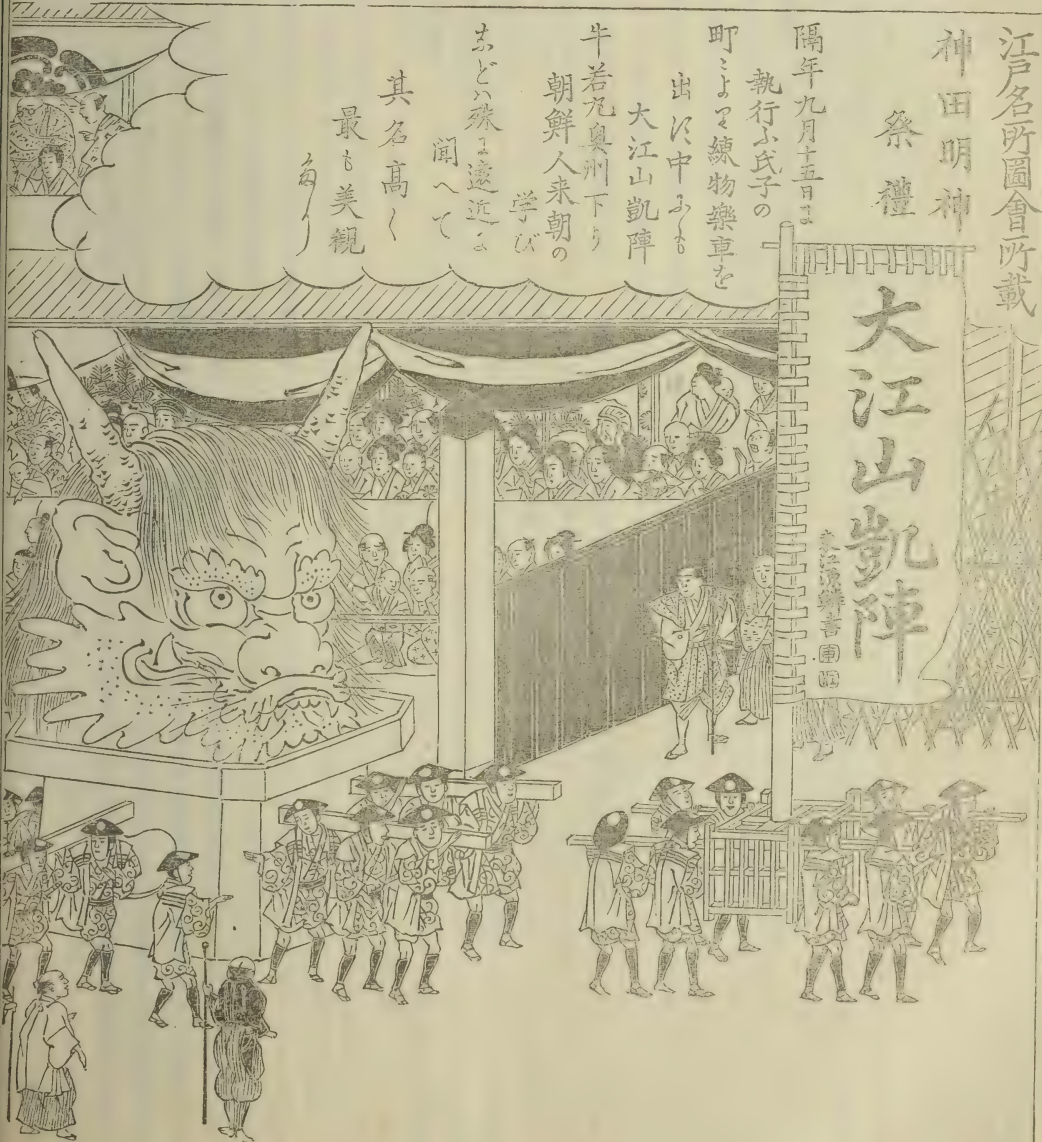 江戸名所圖會所載
神田明神
祭禮
隔年九月十五日に
執行ふ氏子の
町〻より練物樂車を
出す中にも
大江山凱陣
牛若丸奥州下り
朝鮮人来朝の
学び
などハ殊に遠近に
聞へて
其名高く
最も美観
たり
大江山凱陣